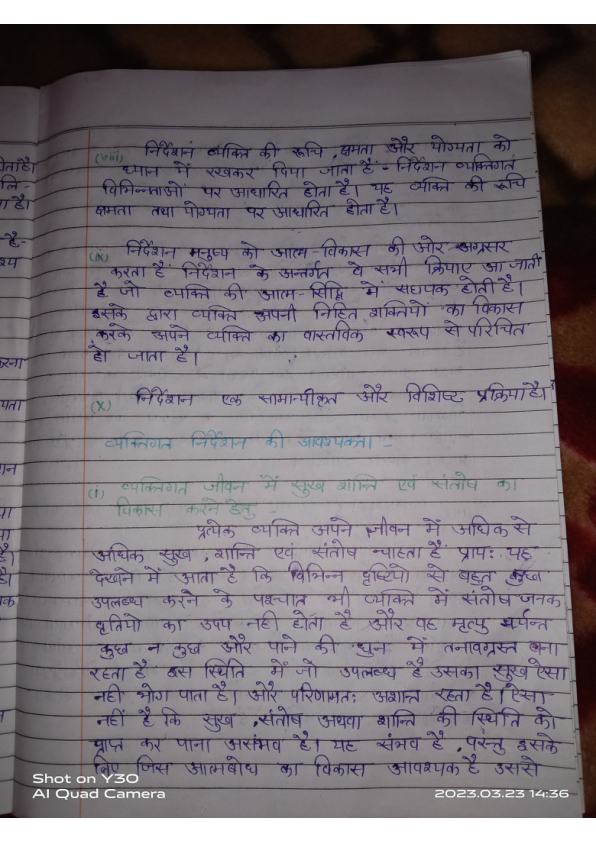 (viii) निर्देशन व्यक्ति की रूचि, क्षमता और योग्यता को
ध्यान में रखकर दिया जाता है - निर्देशन व्यक्तिगत
विभिन्नाओं पर आधारित होता है। यह व्यक्ति की रूचि
क्षमता तथा योग्यता पर आधारित होता है।
(ix) निर्देशन मनुष्य को आत्म-विकास की ओर अग्रसर
करता है निर्देशन के अन्तर्गत वे सभी क्रियाए आ जाती
है जो व्यक्ति की आत्म-सिद्धि में सहायक होती है।
इसके द्वारा व्यक्ति अपनी निहित शक्तियों का विकास
करके अपने व्यक्ति का वास्तविक स्वरूप से परिचित
हो जाता है।
(x) निर्देशन एक सामान्यीकृत और विशिष्ट प्रक्रिया है।
व्यक्तिगत निर्देशन की आवश्यकता -
(i) व्यक्तिगत जीवन में सुख शान्ति एवं संतोष का
विकास करने हेतु -
प्रत्येक व्यक्ति अपने जीवन में अधिक से
अधिक सुख, शान्ति एवं संतोष चाहता है प्रायः यह
देखने में आता है कि विभिन्न दृष्टियो से बहुत कुछ
उपलब्ध करने के पश्चात भी व्यक्ति में संतोष जनक
वृतियो का उदय नही होता है और वह मृत्यु पर्यन्त
कुछ न कुछ और पाने की धुन में तनावग्रस्त बना
रहता है इस स्थिति में जो उपलब्ध है उसका सुख ऐसा
नही भोग पाता है। और परिणामतः अशान्त रहता है। ऐसा
नहीं है कि सुख, संतोष अथवा शान्ति की स्थिति को
प्राप्त कर पाना असंभव है। यह संभव है, परंतु इसके
लिए जिस आत्मबोध का विकास आवश्यक है उससे
Shot on Y30
AI Quad Camera
2023.03.23 14:36